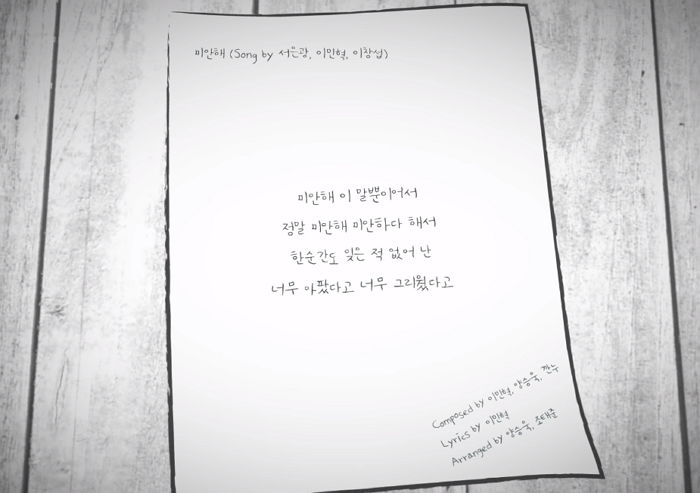 미안해 (Song by 서은광, 이민혁, 이창섭)
미안해 이 말뿐이어서
정말 미안해 미안하다 해서
한순간도 잊은 적 없어 난
너무 아팠다고 너무 그리웠다고
Composed by 이민혁, 양승욱, 깐누
Lyrics by 이민혁
Arranged by 양승욱, 조태준